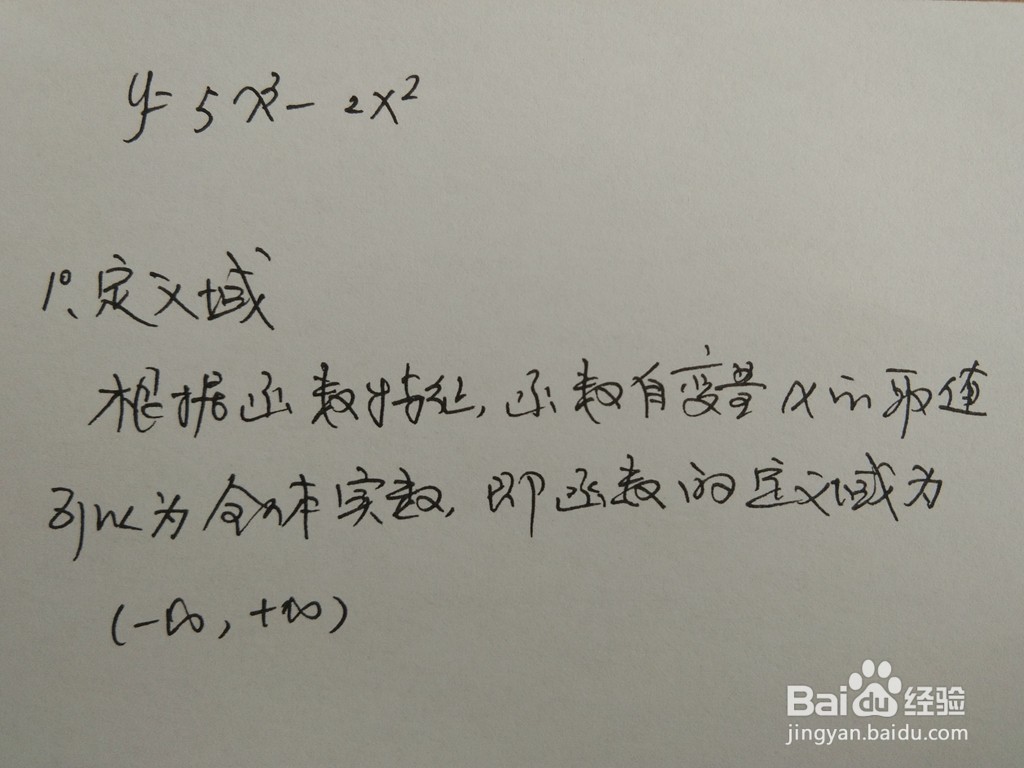 y=5x³-2x²
1°、定义域
根据函数特征,函数自变量x的取值
可以为全体实数,即函数的定义域为
(-∞,+∞)
Bai du 经验
jingyan.baidu.com